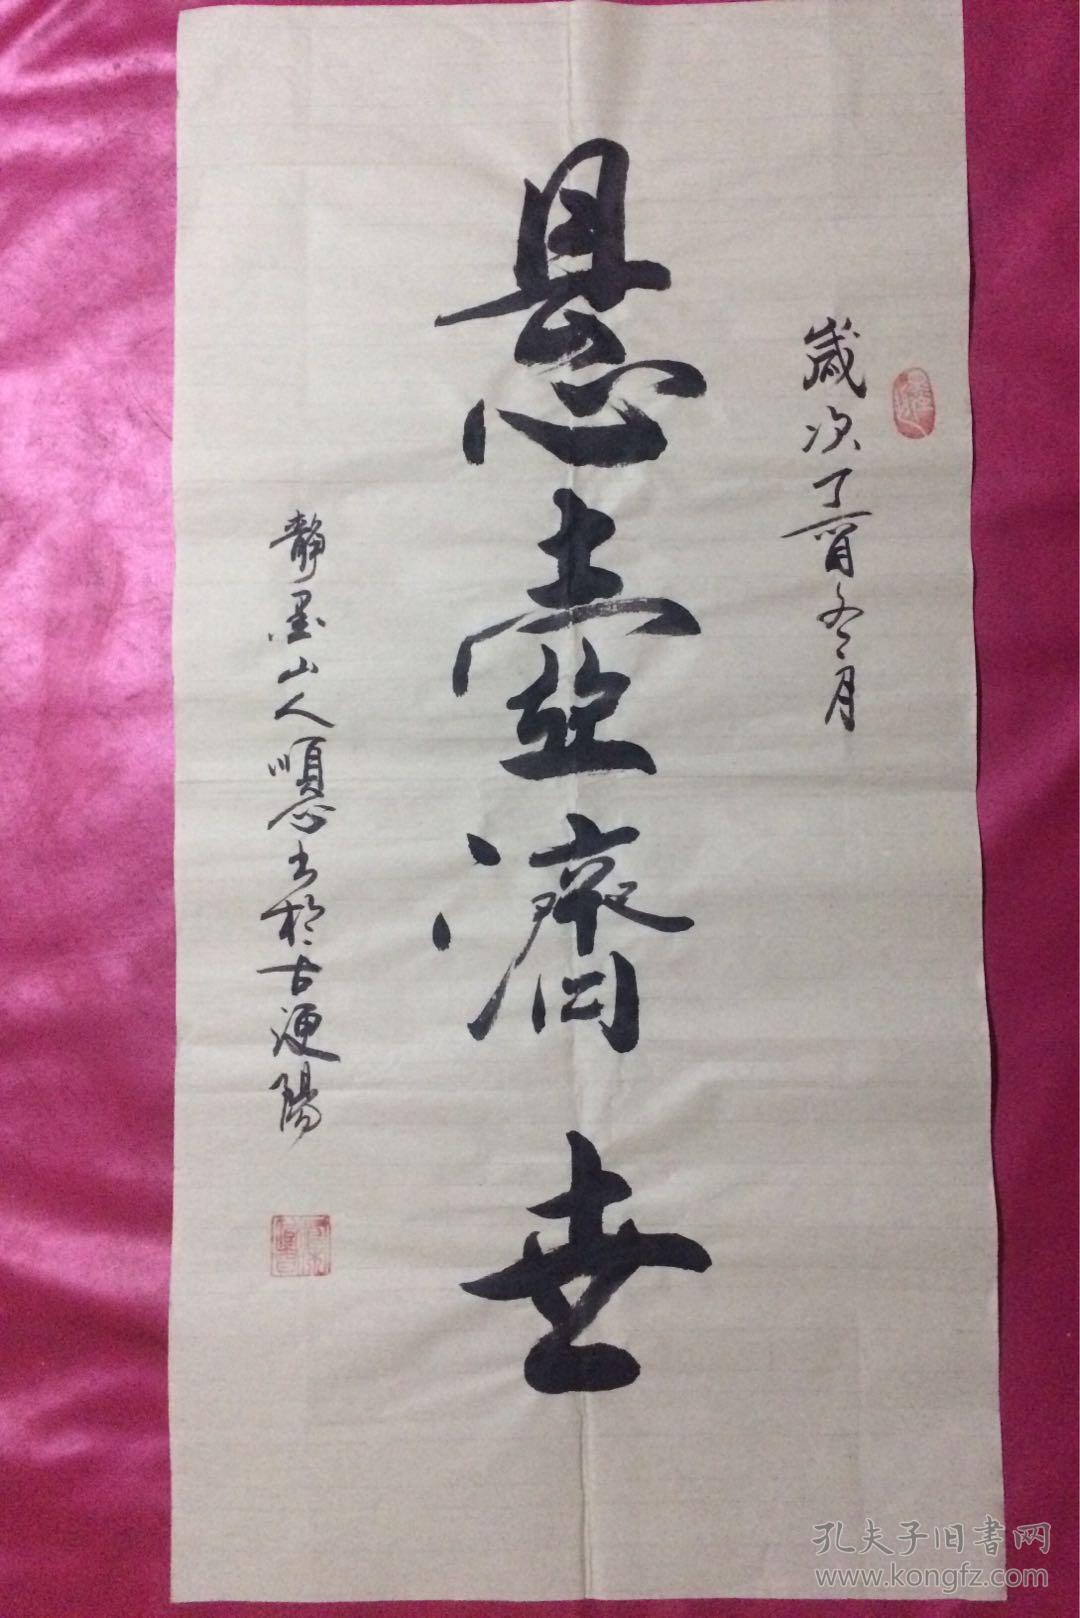 歲次丁酉冬月
悬壺濟世
靜墨山人順心书於古梗陽
孔夫子旧书网
www.kongfz.com